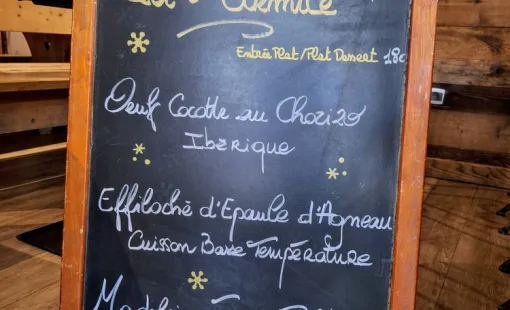 Entrée Plat/Plat Dessert 18€
Oeuf Cocotte au Chorizo
Ibérique
Effiloché d'Epaule d'Agneau
Cuisson Basse Température